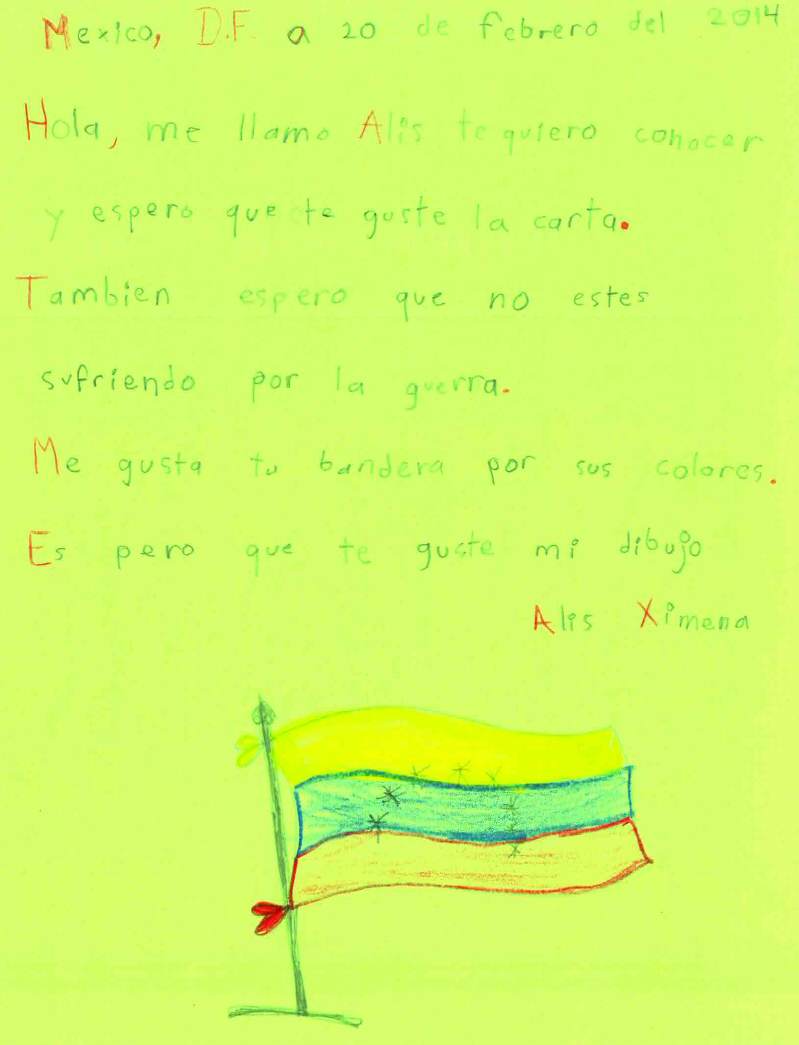 Mexico, D.F. a 20 de febrero del 2014
Hola, me llamo Alis te quiero conocer
y espero que te guste la carta.
Tambien espero que no estes
sufriendo por la guerra.
Me gusta tu bandera por sus colores.
Es pero que te guste mi dibujo
Alis Ximena